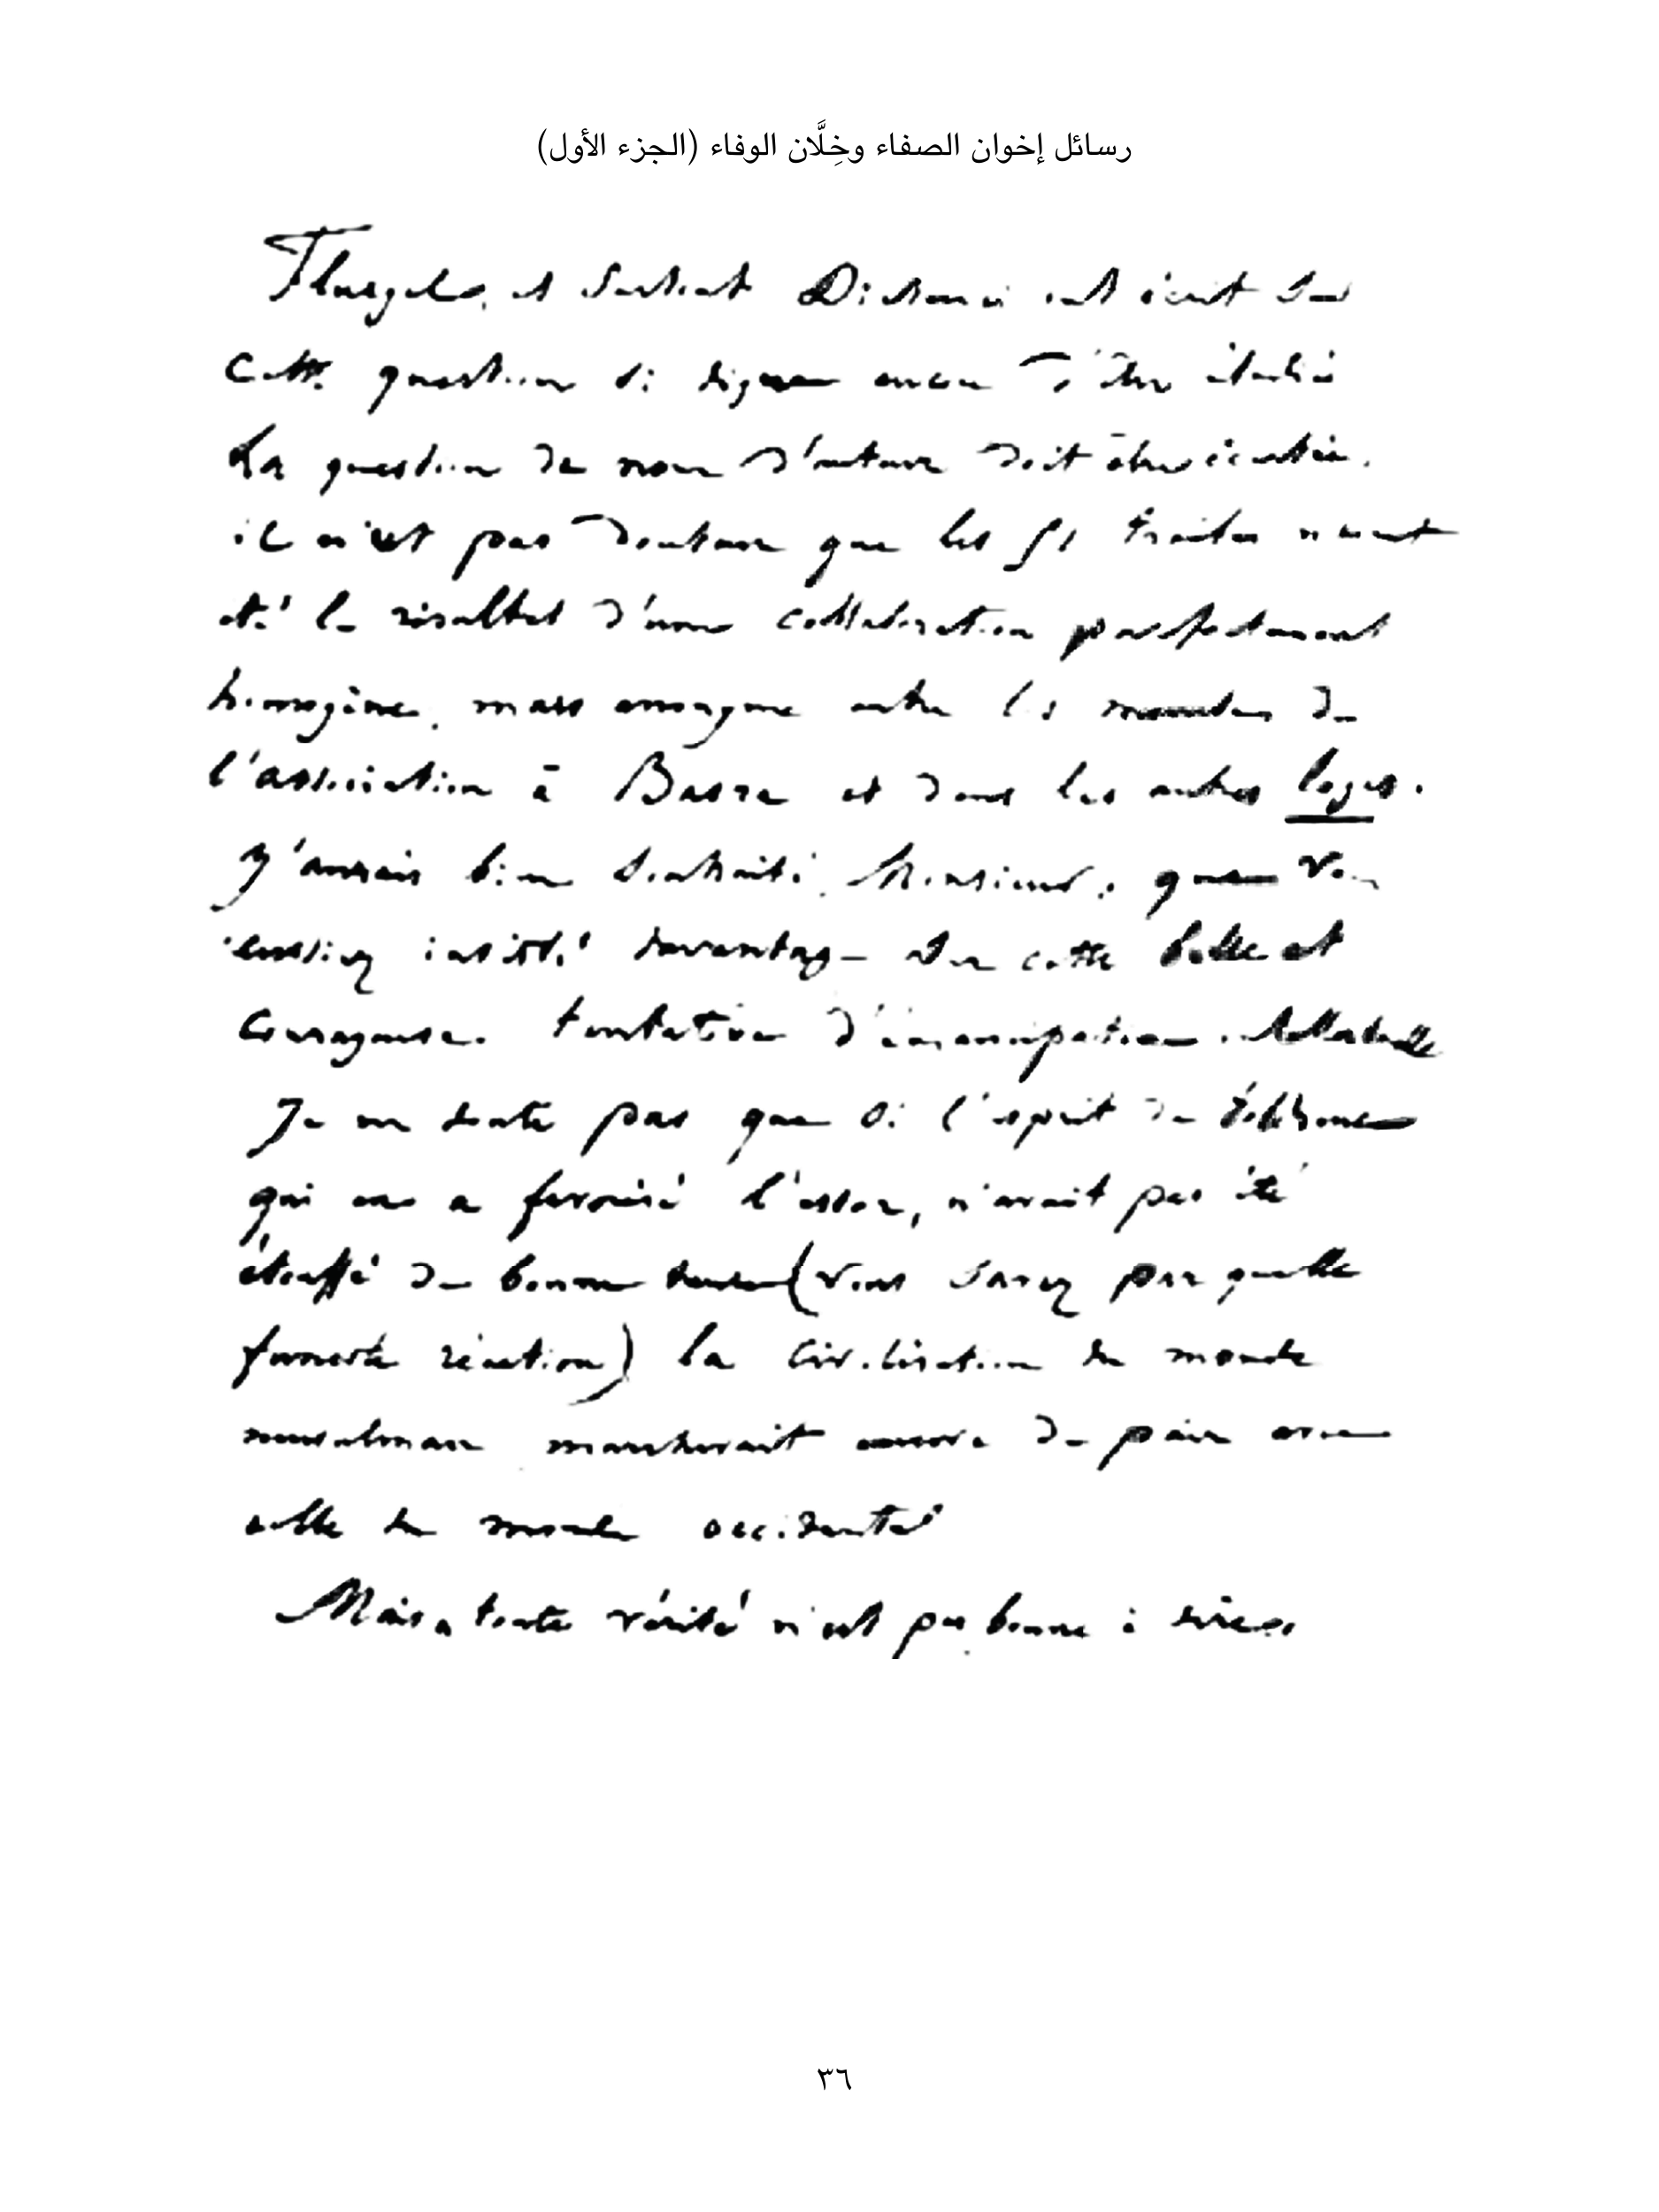 رسائل إخوان الصفاء وخِلَّان الوفاء (الجزء الأول)
Fluegel, et surtout Dieterici ont écrit sur
cette question si digne encore d'être étudiée
La question de nom d'auteur doit être écartée.
il n'est pas douteux que les 51 traités n'aient
été le résultat d'une collaboration parfaitement
homogène, mais anonyme entre les membres de
l'association à Basra et dans les autres loges.
J'aurais bien souhaité, Monsieur, que vous
eussiez insisté davantage sur cette belle et
courageuse tentative d'émancipation intellectuelle
Je ne doute pas que si l'esprit de
qui en a favorisé l'essor, n'avait pas été
étouffé de bonne heure (vous savez par quelle
funeste réaction) la civilisation du monde
musulman marcherait encore de pair avec
celle du monde occidental
Mais, toute vérité n'est pas bonne à dire.
٣٦